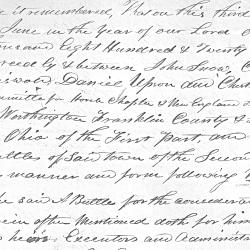 it remembered, That on this third
June in the year of our Lord O
and Eight Hundred & Twenty
greed by & between John Snow,
Daniel Upson and
for Horne Chapter & New England
Worthington Franklin County &
Ohio of the First Part, and
ttles of Said town of the Secon
manner and form following
he said A Buttles for the
ein after Mentioned doth for him
heirs Executors and Administra